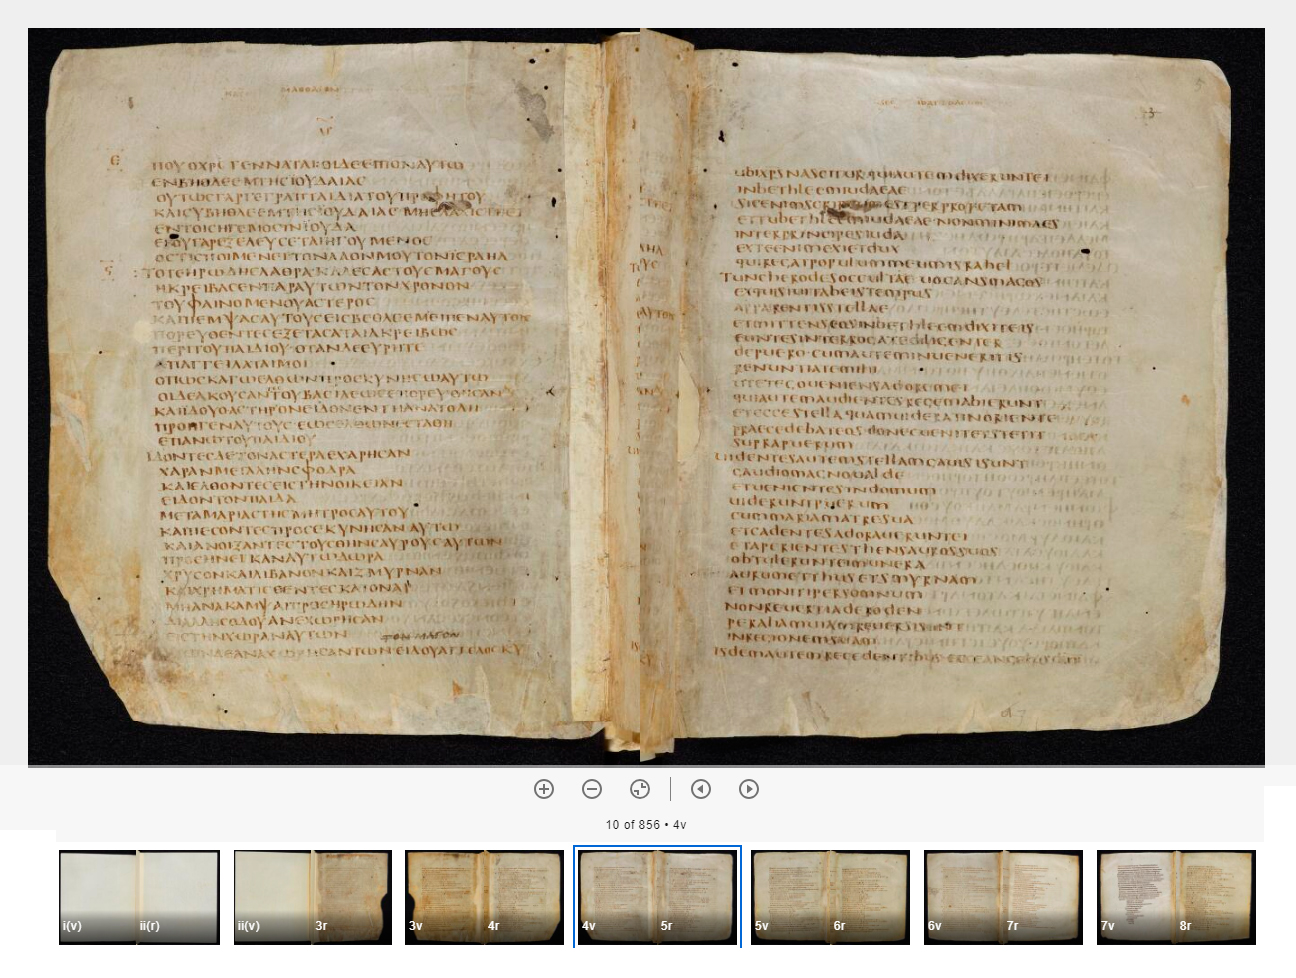 ΠΟΥ Ο ΧΡΣ ΓΕΝΝΑΤΑΙ ΟΙ ΔΕ ΕΙΠΟΝ ΑΥΤΩ
ΕΝ ΒΗΘΛΕΕΜ ΤΗΣ ΙΟΥΔΑΙΑΣ
ΟΥΤΩΣ ΓΑΡ ΓΕΓΡΑΠΤΑΙ ΔΙΑ ΤΟΥ ΠΡΟΦΗΤΟΥ
ΚΑΙ ΣΥ ΒΗΘΛΕΕΜ ΤΗΣ ΙΟΥΔΑΙΑΣ ΜΗ
ΕΝ ΤΟΙΣ ΗΓΕΜΟΣΙΝ ΙΟΥΔΑ
ΕΚ ΣΟΥ ΓΑΡ ΕΞΕΛΕΥΣΕΤΑΙ ΗΓΟΥΜΕΝΟΣ
ΟΣΤΙΣ ΠΟΙΜΕΝΕΙ ΤΟΝ ΛΑΟΝ ΜΟΥ ΤΟΝ ΙΣΡΑΗΛ
ΤΟΤΕ ΗΡΩΔΗΣ ΛΑΘΡΑ ΚΑΛΕΣΑΣ ΤΟΥΣ ΜΑΓΟΥΣ
ΗΚΡΕΙΒΑΣΕΝ ΠΑΡ ΑΥΤΩΝ ΤΟΝ ΧΡΟΝΟΝ
ΤΟΥ ΦΑΙΝΟΜΕΝΟΥ ΑΣΤΕΡΟΣ
ΚΑΙ ΠΕΜΨΑΣ ΑΥΤΟΥΣ ΕΙΣ ΒΕΘΛΕΕΜ ΕΙΠΕΝ ΑΥΤΟΙΣ
ΠΟΡΕΥΘΕΝΤΕΣ ΕΞΕΤΑΣΑΤΑΙ ΑΚΡΕΙΒΩΣ
ΠΕΡΙ ΤΟΥ ΠΑΙΔΙΟΥ ΟΤΑΝ ΔΕ ΕΥΡΗΤΕ
ΑΠΑΓΓΕΙΛΑΤΑΙ ΜΟΙ
ΟΠΩΣ ΚΑΓΩ ΕΛΘΩΝ ΠΡΟΣΚΥΝΗΣΩ ΑΥΤΩ
ΟΙ ΔΕ ΑΚΟΥΣΑΝΤΕΣ ΤΟΥ ΒΑΣΙΛΕΩΣ ΕΠΟΡΕΥΘΗΣΑΝ
ΚΑΙ ΙΔΟΥ Ο ΑΣΤΗΡ ΟΝ ΕΙΔΟΝ ΕΝ ΤΗ ΑΝΑΤΟΛΗ
ΠΡΟΗΓΕΝ ΑΥΤΟΥΣ ΕΩΣ ΕΛΘΩΝ ΕΣΤΑΘΗ
ΕΠΑΝΩ ΤΟΥ ΠΑΙΔΙΟΥ
ΙΔΟΝΤΕΣ ΔΕ ΤΟΝ ΑΣΤΕΡΑ ΕΧΑΡΗΣΑΝ
ΧΑΡΑΝ ΜΕΓΑΛΗΝ ΣΦΟΔΡΑ
ΚΑΙ ΕΛΘΟΝΤΕΣ ΕΙΣ ΤΗΝ ΟΙΚΕΙΑΝ
ΕΙΔΟΝ ΤΟΝ ΠΑΙΔΑ
ΜΕΤΑ ΜΑΡΙΑΣ ΤΗΣ ΜΗΤΡΟΣ ΑΥΤΟΥ
ΚΑΙ ΠΕΣΟΝΤΕΣ ΠΡΟΣΕΚΥΝΗΣΑΝ ΑΥΤΩ
ΚΑΙ ΑΝΟΙΞΑΝΤΕΣ ΤΟΥΣ ΘΗΣΑΥΡΟΥΣ ΑΥΤΩΝ
ΠΡΟΣΗΝΕΓΚΑΝ ΑΥΤΩ ΔΩΡΑ
ΧΡΥΣΟΝ ΚΑΙ ΛΙΒΑΝΟΝ ΚΑΙ ΖΜΥΡΝΑΝ
ΚΑΙ ΧΡΗΜΑΤΙΣΘΕΝΤΕΣ ΚΑΤ ΟΝΑΡ
ΜΗ ΑΝΑΚΑΜΨΑΙ ΠΡΟΣ ΗΡΩΔΗΝ
ΔΙ ΑΛΛΗΣ ΟΔΟΥ ΑΝΕΧΩΡΗΣΑΝ
ΕΙΣ ΤΗΝ ΧΩΡΑΝ ΑΥΤΩΝ
ΑΝΑΧΩΡΗΣΑΝΤΩΝ ΕΙΔΟΥ ΑΓΓΕΛΟΣ ΚΥ
ubi xps nascitur qui autem dixerunt ei
in bethleem iudaeae
sic enim scriptum est per profetam
et tu bethleem iudaeae non minima es
inter principes iuda
ex te enim exiet dux
qui regat populum meum israhel
Tunc herodes occulte uocans magos
exquisiuit ab eis tempus
apparentis stellae
et mittens eos in bethleem dixit eis
euntes interrogate diligenter
de puero cum autem inueneritis
renuntiate mihi
ut et ego ueniens adorem ei
qui autem audientes regem abierunt
et ecce stella quam uiderat in oriente
praecedebat eos donec uenit et stetit
supra puerum
uidentes autem stellam gauisi sunt
gaudio magno ualde
et uenientes in domum
uiderunt puerum
cum maria matre sua
et cadentes adorauerunt ei
et aperientes thensauros suos
obtulerunt ei munera
aurum et thus et smyrnam
et moniti per somnium
non reuerti ad eroden
per aliam uiam reuersi sunt
in regionem suam
is autem recedentibus ecce angelus dni
10 of 856 • 4v
i(v) ii(r) ii(v) 3r 3v 4r 4v 5r 5v 6r 6v 7r 7v 8r